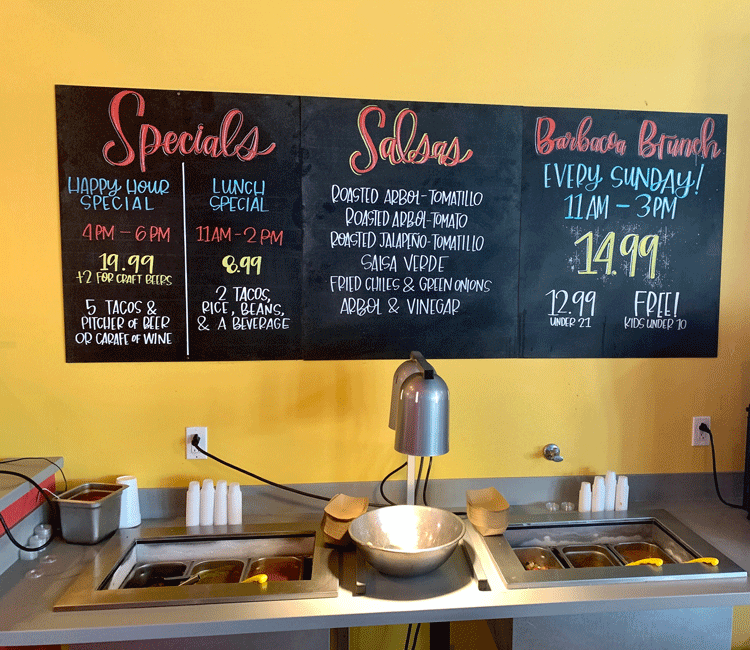 Specials
HAPPY HOUR
SPECIAL
4PM - 6PM
19.99
+2 FOR CRAFT BEERS
5 TACOS &
PITCHER OF BEER
OR CARAFE OF WINE
LUNCH
SPECIAL
11AM - 2PM
8.99
2 TACOS,
RICE, BEANS,
& A BEVERAGE
Salsas
ROASTED ARBOL-TOMATILLO
ROASTED ARBOL-TOMATO
ROASTED JALAPEÑO-TOMATILLO
SALSA VERDE
FRIED CHILES & GREEN ONIONS
ARBOL & VINEGAR
Barbacoa Brunch
EVERY SUNDAY!
11AM - 3PM
14.99
12.99
UNDER 21
FREE!
KIDS UNDER 10